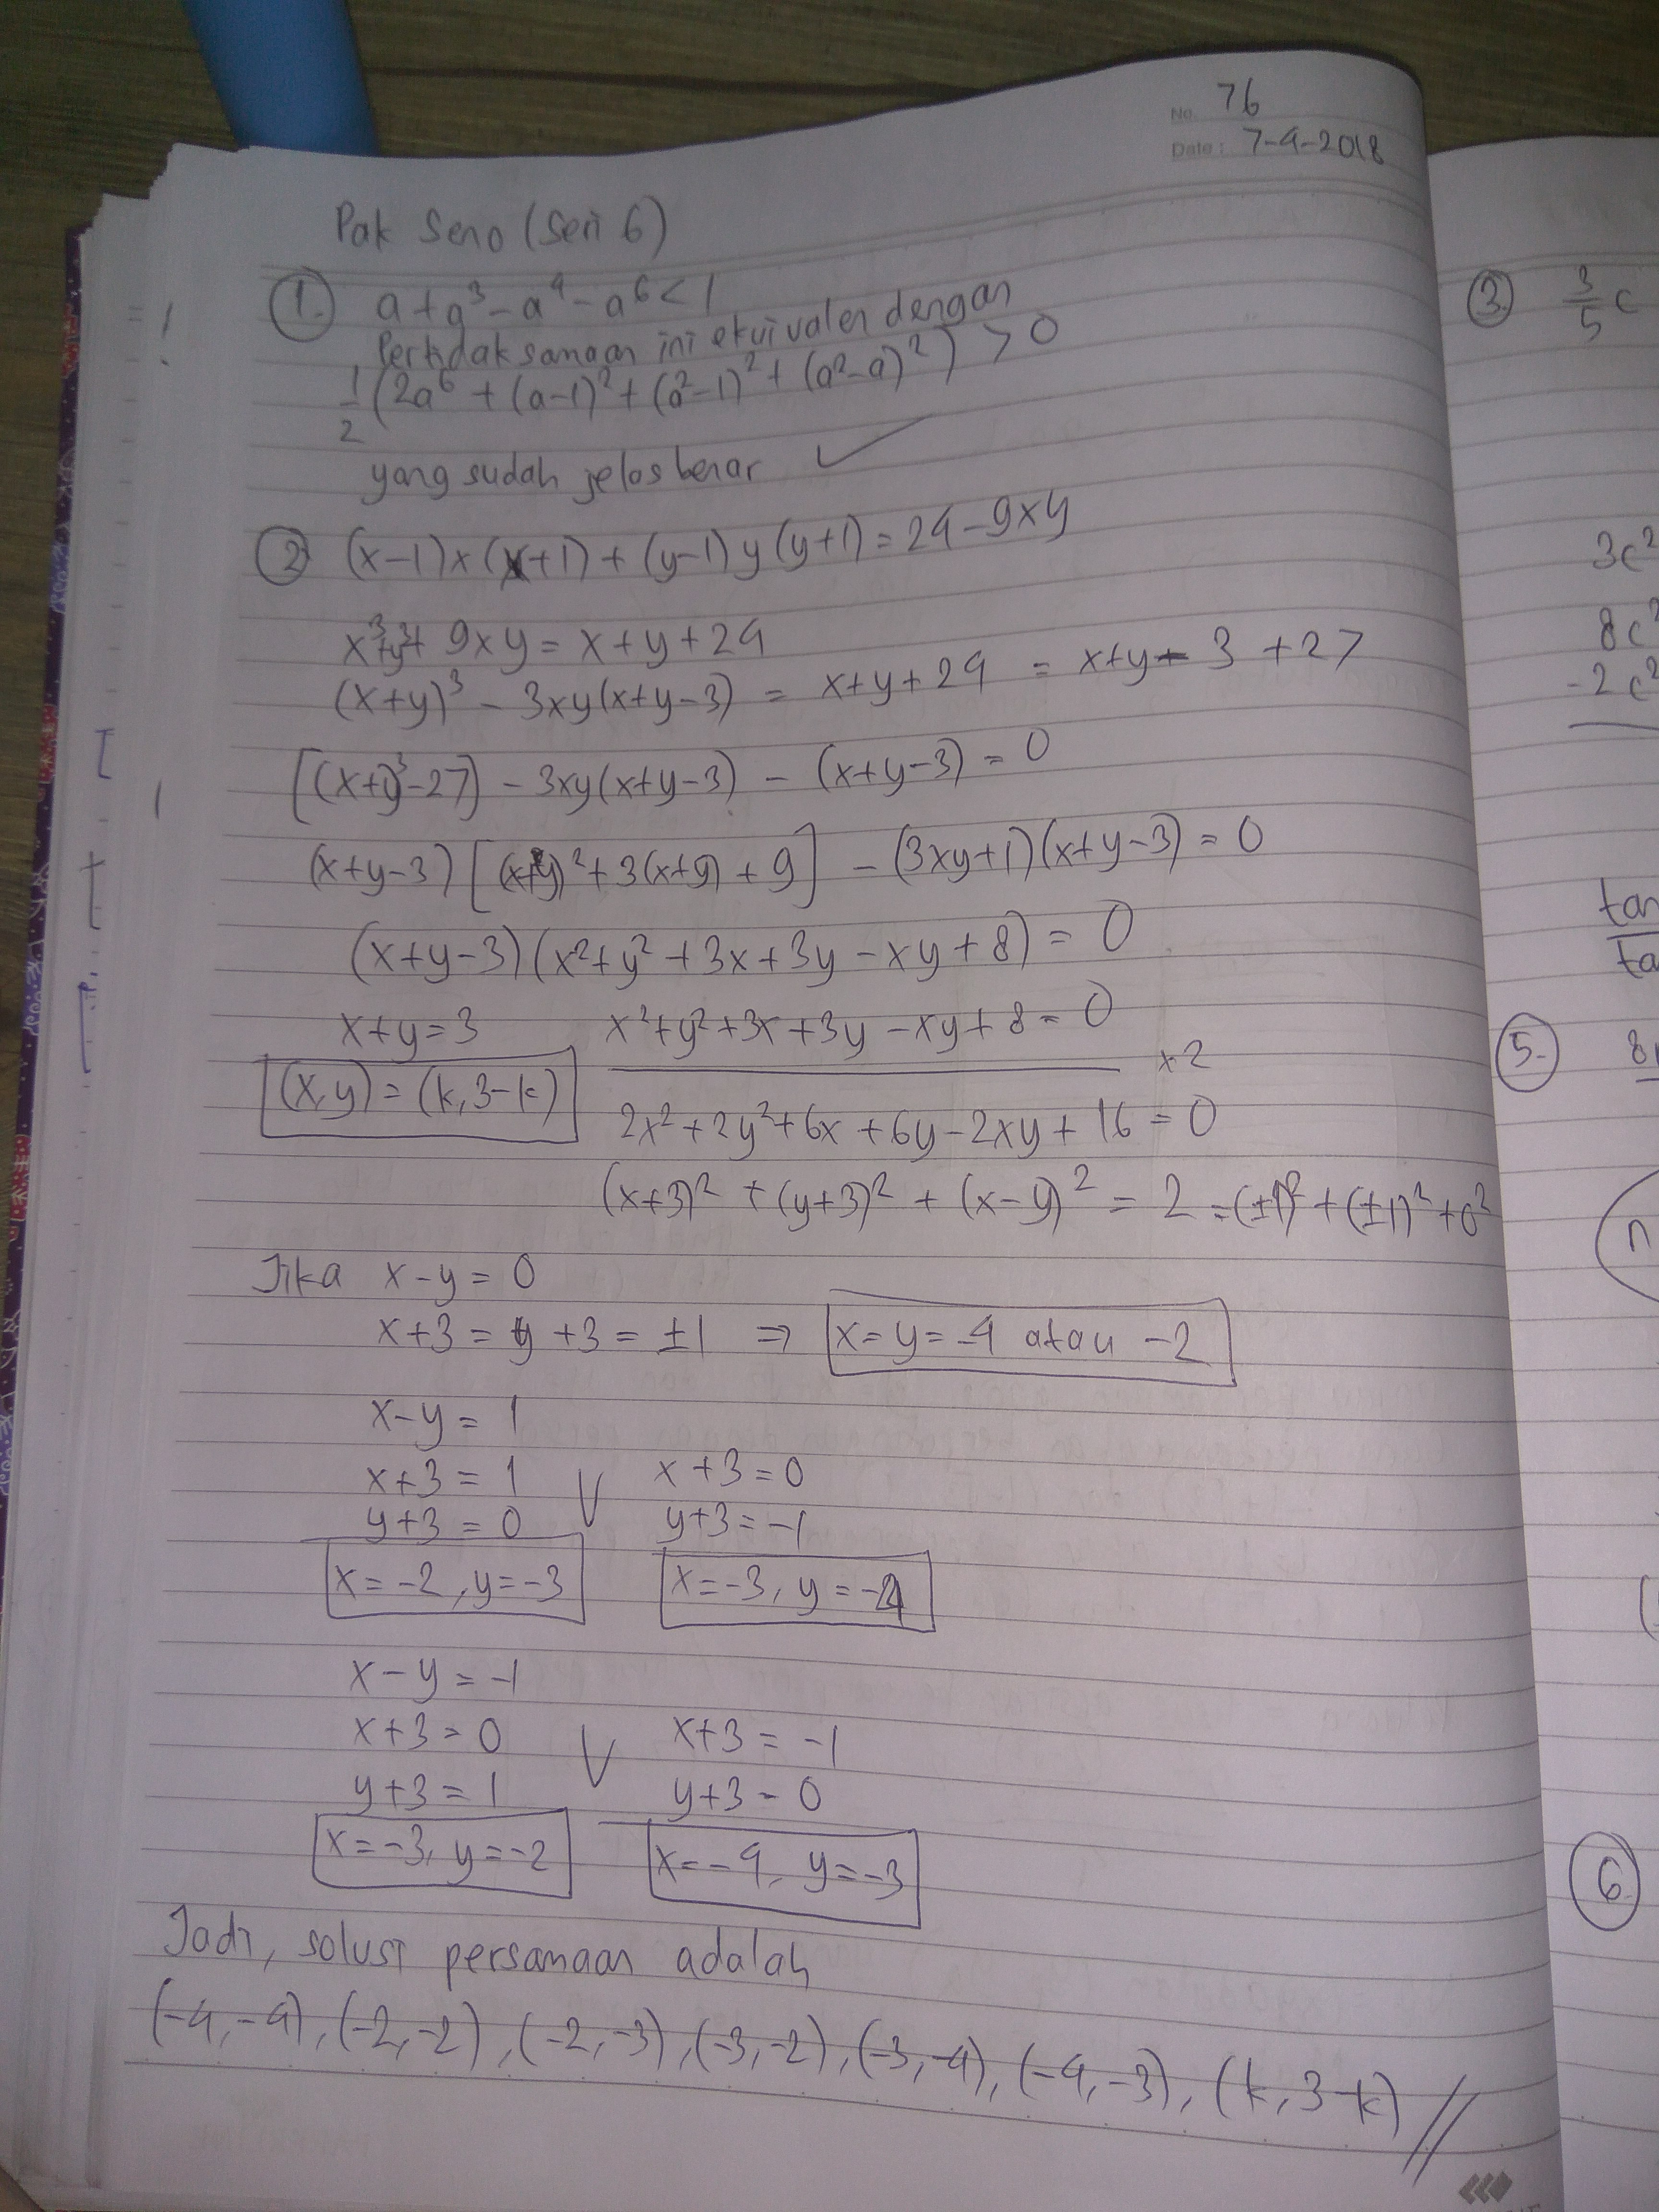 No. 76
Date: 7-4-2018
Pak Seno (Seri 6)
1. a + a³ - a⁴ - a⁶ < 1
Pertidaksamaan ini ekuivalen dengan
1/2 (2a⁶ + (a-1)² + (a²-1)² + (a²-a)²) > 0
yang sudah jelas benar ✓
2 (x-1)x(x+1) + (y-1)y(y+1) = 24 - 9xy
x³+y³+ 9xy = x + y + 24
(x+y)³ - 3xy(x+y-3) = x+y+24 = x+y-3+27
[(x+y)³-27] - 3xy(x+y-3) - (x+y-3) = 0
(x+y-3) [(x+y)²+3(x+y)+9] - (3xy+1)(x+y-3) = 0
(x+y-3)(x²+y²+3x+3y-xy+8) = 0
x+y=3 x²+y²+3x+3y-xy+8=0
×2
(x,y) = (k,3-k) 2x²+2y²+6x+6y-2xy+16=0
(x+3)² + (y+3)² + (x-y)² = 2 = (±1)²+(±1)²+0²
Jika x-y=0
x+3 = y+3 = ±1 ⇒ x=y=-4 atau -2
x-y = 1
x+3 = 1 V x+3=0
y+3 = 0 y+3=-1
x=-2, y=-3 x=-3, y=-4
x-y=-1
x+3=0 V x+3=-1
y+3=1 y+3=0
x=-3, y=-2 x=-4, y=-3
Jadi, solusi persamaan adalah
(-4,-4), (-2,-2), (-2,-3), (-3,-2), (-3,-4), (-4,-3), (k,3-k) //
3 3/5 c
3c²
8c²
-2c²
5.
6